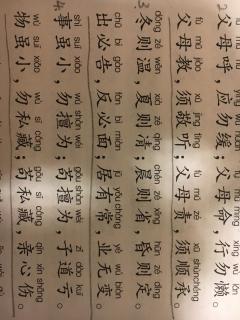 2. fù mǔ hū yìng wù huǎn fù mǔ mìng xíng wù lǎn
父母呼，应勿缓；父母命，行勿懒。
fù mǔ jiào xū jìng tīng fù mǔ zé xū shùn chéng
父母教，须敬听；父母责，须顺承。
3. dōng zé wēn xià zé qìng chén zé xǐng hūn zé dìng
冬则温，夏则凊；晨则省，昏则定。
chū bì gào fǎn bì miàn jū yǒu cháng yè wú biàn
出必告，反必面；居有常，业无变。
4. shì suī xiǎo wù shàn wéi gǒu shàn wéi zǐ dào kuī
事虽小，勿擅为；苟擅为，子道亏。
wù suī xiǎo wù sī cáng gǒu sī cáng qīn xīn shāng
物虽小，勿私藏；苟私藏，亲心伤。